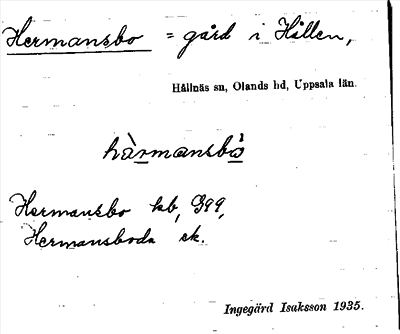 Hermansbo = gård i Hållen,
Hållnäs sn, Olands hd, Uppsala län.
hàrmansbò
Hermansbo kb, G99,
Hermansboda ek.
Ingegärd Isaksson 1935.